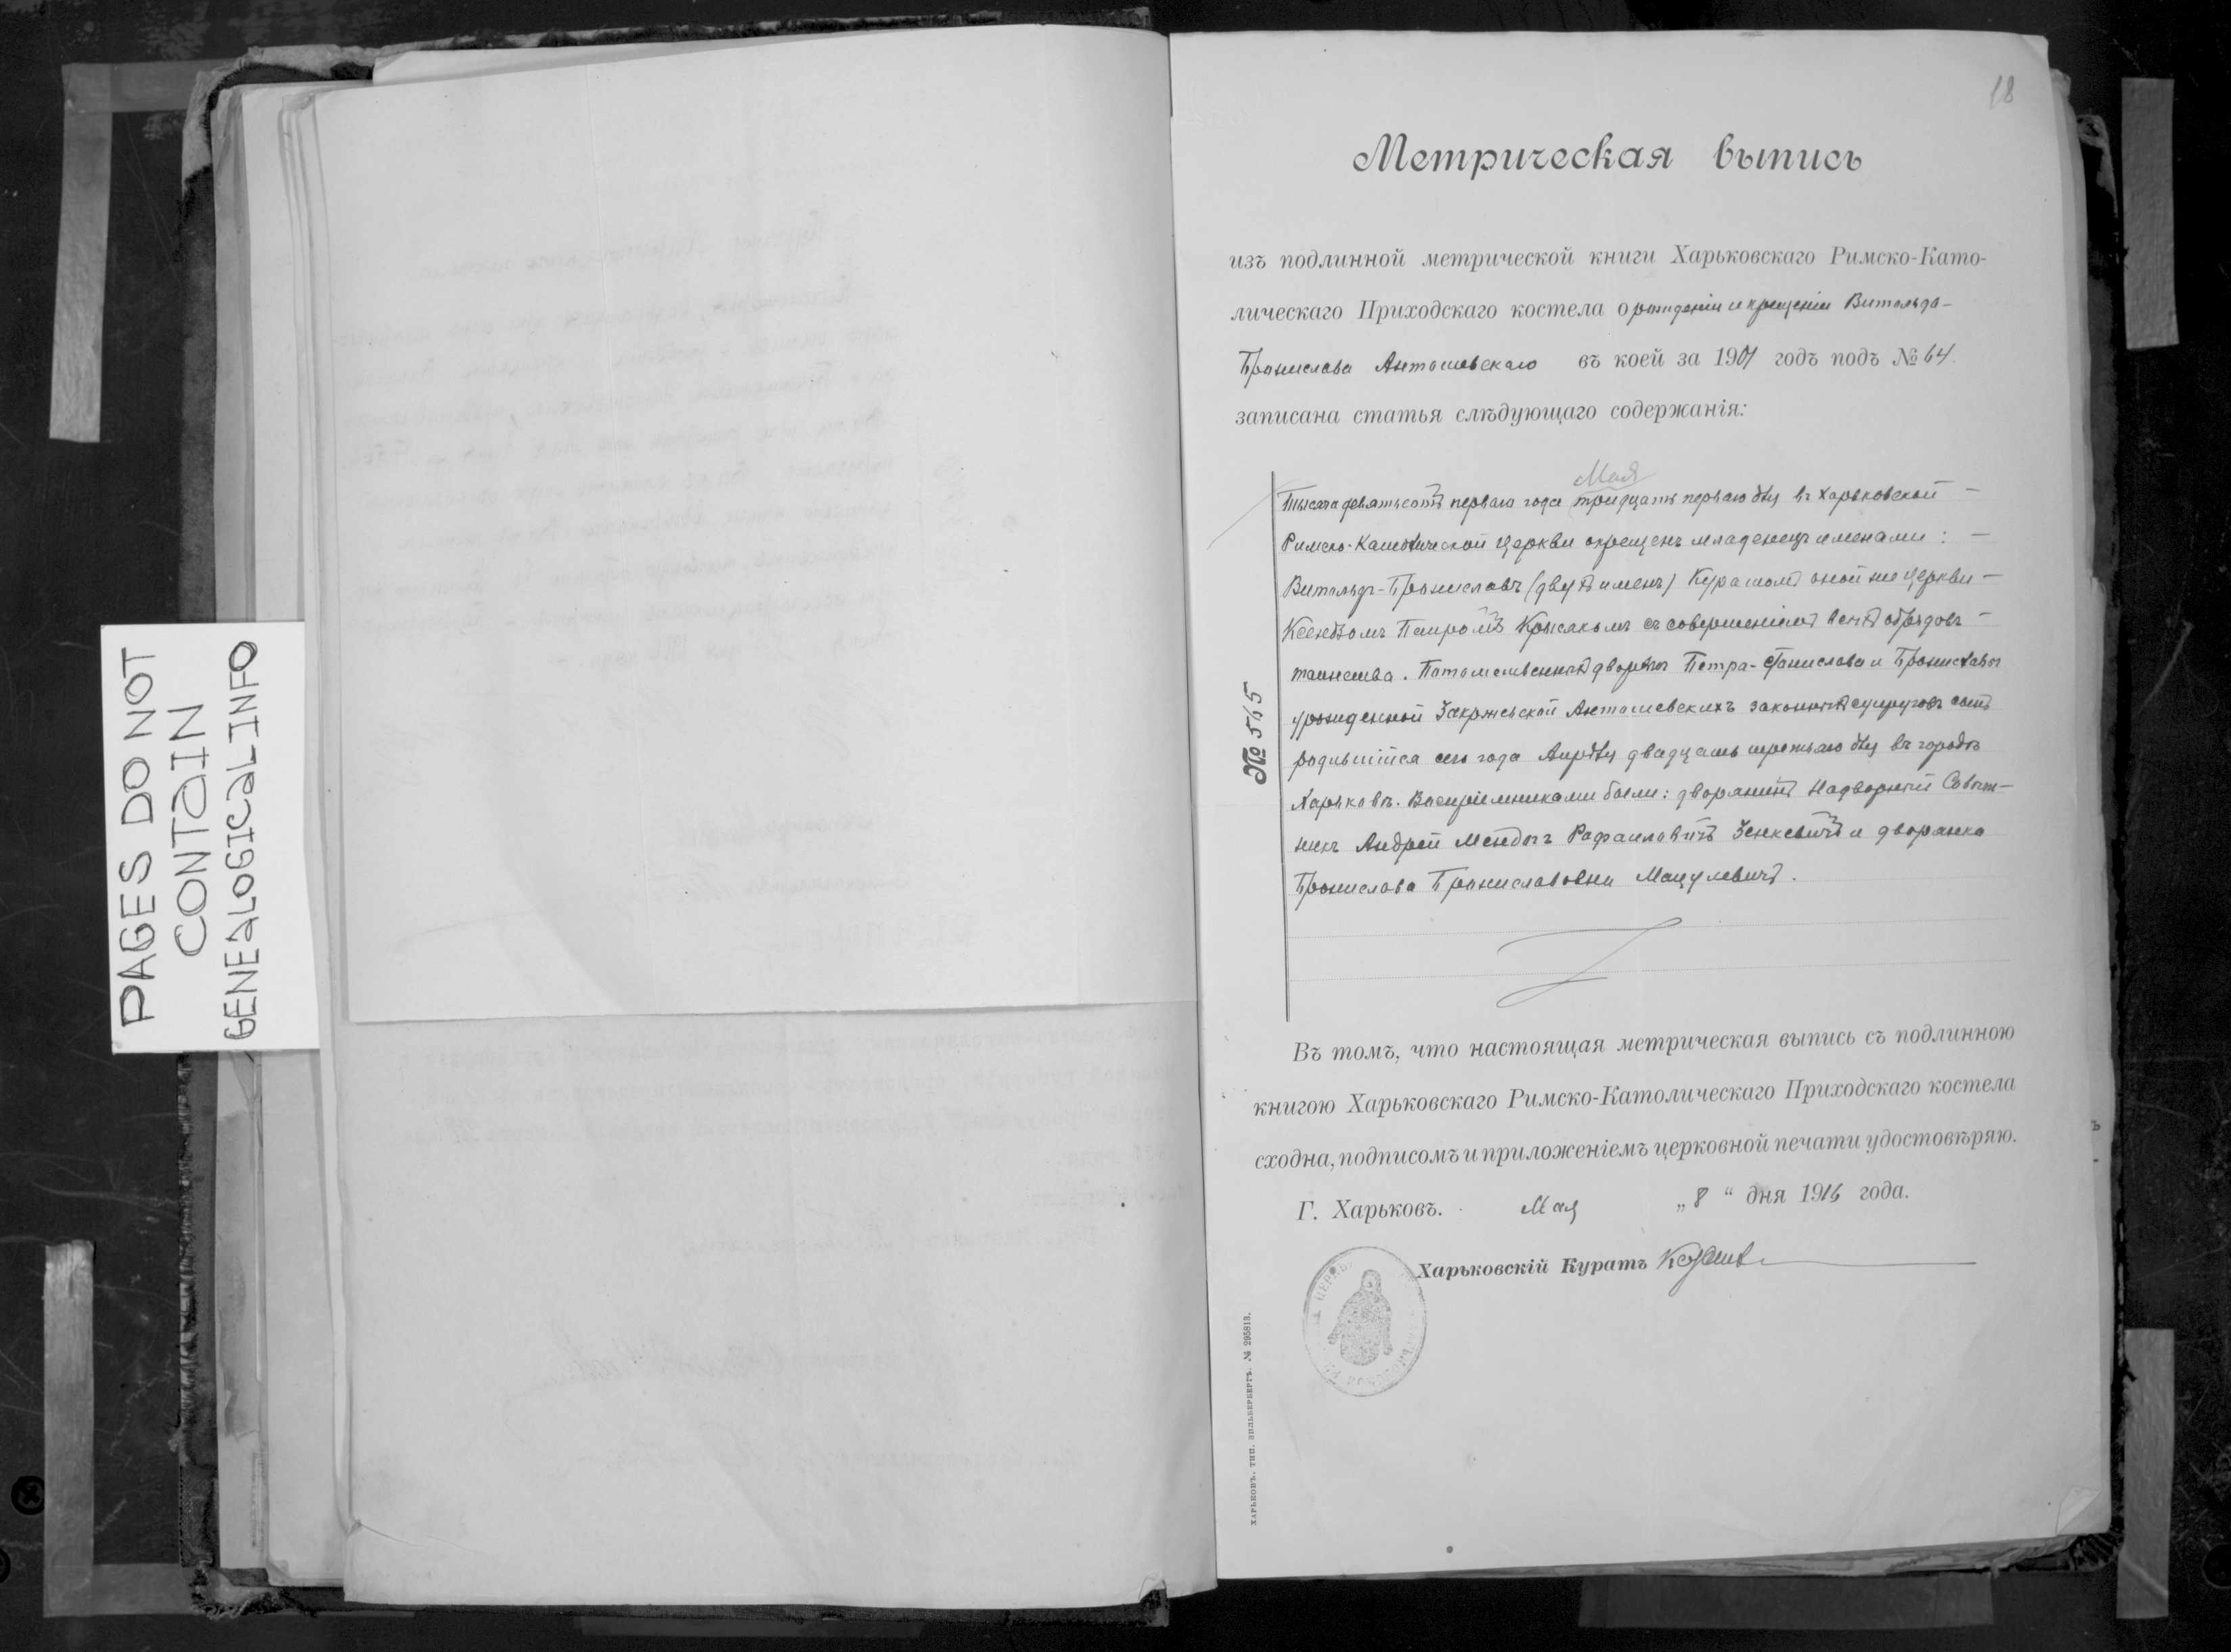 PAGES DO NOT
CONTAIN
GENEALOGICAL INFO
18
Метрическая выпись
изъ подлинной метрической книги Харьковскаго Римско-Като-
лическаго Приходскаго костела о рожденіи и крещеніи Витольда-
Бронислава Антошевскаго въ коей за 1901 годъ подъ № 64.
записана статья слѣдующаго содержанія:
Мая
Тысяча девятьсотъ перваго года тридцать перваго дня въ Харьковской -
Римско-Католической церкви окрещенъ младенецъ именами: -
Витольдъ-Брониславъ (двухъ именъ) Куратомъ оной же церкви -
Ксендзомъ Петромъ съ совершеніемъ всѣхъ обрядовъ -
таинства. Потомственныхъ дворянъ Петра-Станислава и Брониславы
урожденной Закржевской Антошевскихъ законныхъ супруговъ сынъ
родившійся сего года Апрѣля двадцать третьяго дня въ городѣ
Харьковѣ. Воспріемниками были: дворянинъ Надворный Совѣт-
никъ Андрей Рафаиловичъ Зенкевичъ и дворянка
Бронислава Брониславовна Мацулевичъ.
№ 515
Въ томъ, что настоящая метрическая выпись съ подлинною
книгою Харьковскаго Римско-Католическаго Приходскаго костела
сходна, подписомъ и приложеніемъ церковной печати удостовѣряю.
Г. Харьковъ. Мая „8“ дня 1916 года.
Харьковскій Куратъ
ХАРЬКОВЪ. ТИП. ЗИЛЬБЕРБЕРГЪ. № 295813.